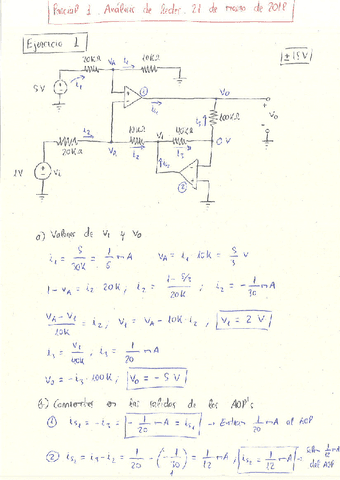 Parcial 1. Análisis de Redes. 21 de marzo de 2018
Ejercicio 1
±15V
20KΩ VA i1 10KΩ
5V i1
① is1 V0
i2 10KΩ V1 40KΩ i3 100KΩ V0
20KΩ VA i3 0V
1V Vi is2
②
a) Valores de V1 y V0
i1 = 5/30K = 1/6 mA VA = i1 · 10K = 5/3 V
1 - VA = i2 · 20K ; i2 = 1-5/3 / 20K ; i2 = -1/30 mA
VA - V1 / 10K = i2 ; V1 = VA - 10K · i2 ; V1 = 2 V
i3 = V1/40K ; i3 = 1/20 mA
V0 = -i3 · 100K ; V0 = -5 V
b) Corrientes en las salidas de los AOP's
① is1 = -i3 = -1/20 mA = is1 → Entran 1/20 mA al AOP
② is2 = i3 - i2 = 1/20 - (-1/30) = 1/12 mA ; is2 = 1/12 mA → salen 1/12 mA del AOP